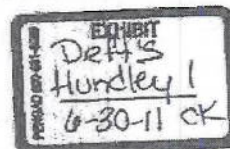 EXHIBIT
Deft's
Hundley 1
6-30-11 CK